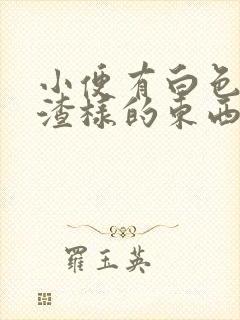 小便有白色
渣樣的東西
羅玉英